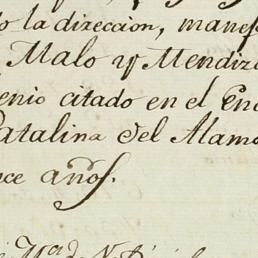 o la direccion, manef
Malo y Mendiz
enio citado en el En
Catalina del Alam
ce años.